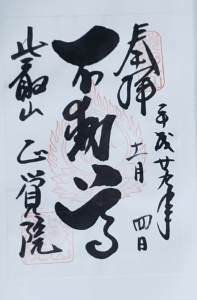 奉拝
平成廿九年
十一月四日
不動尊
比叡山
正覚院